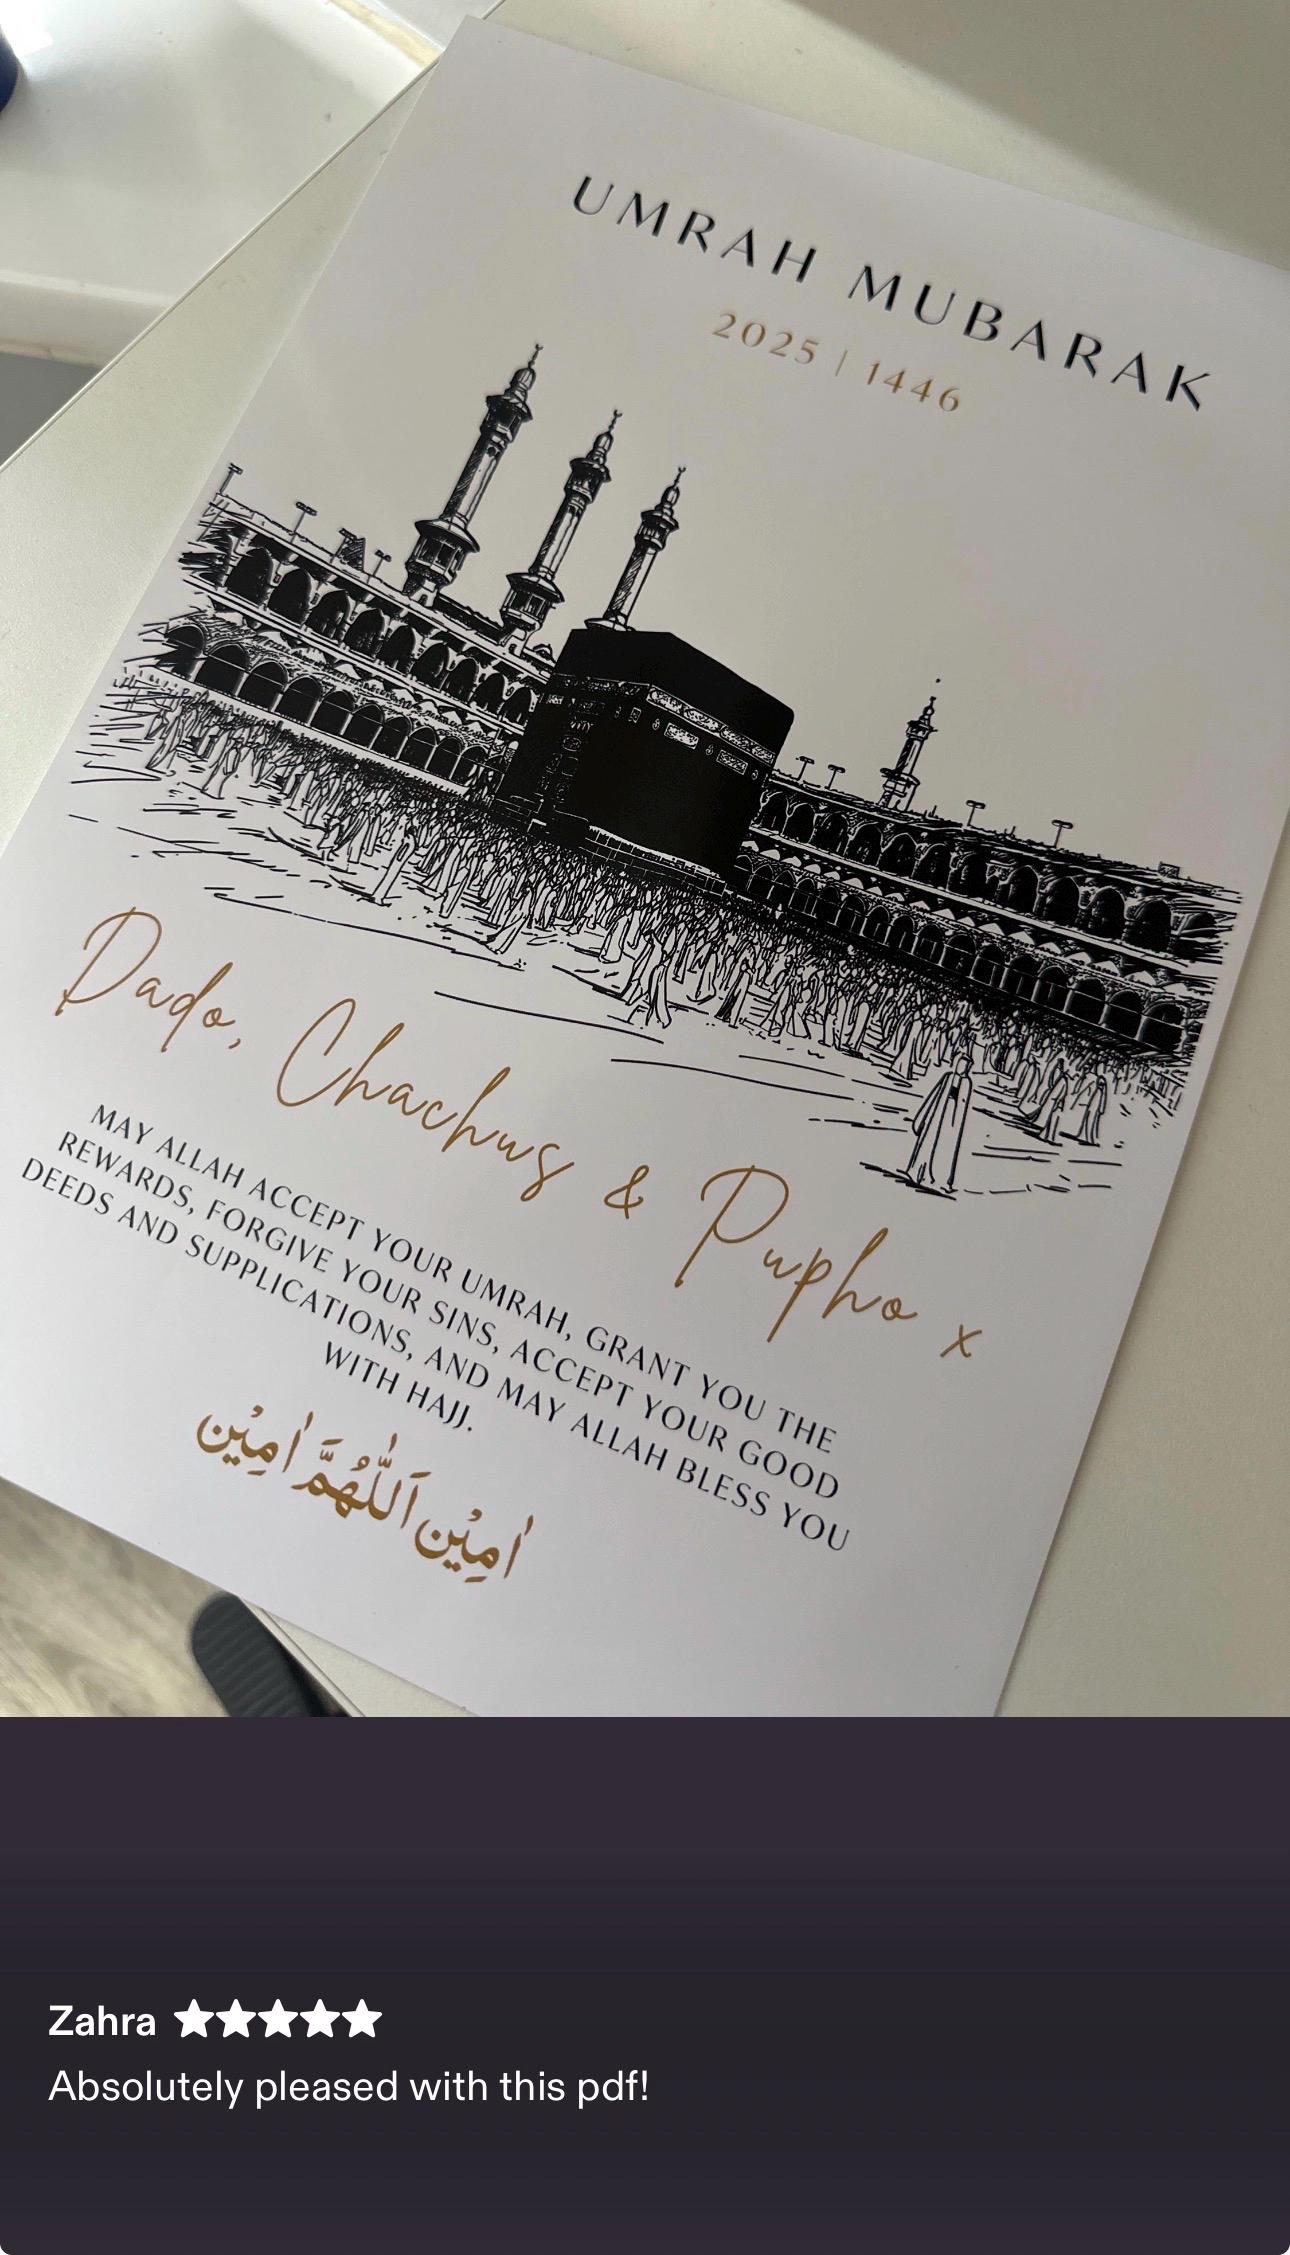 UMRAH MUBARAK
2025 | 1446
Dado, Chachus & Pupho x
MAY ALLAH ACCEPT YOUR UMRAH, GRANT YOU THE
REWARDS, FORGIVE YOUR SINS, ACCEPT YOUR GOOD
DEEDS AND SUPPLICATIONS, AND MAY ALLAH BLESS YOU
WITH HAJJ.
اٰمِيْن اَللّٰهُمَّ اٰمِيْن
Zahra ★★★★★
Absolutely pleased with this pdf!